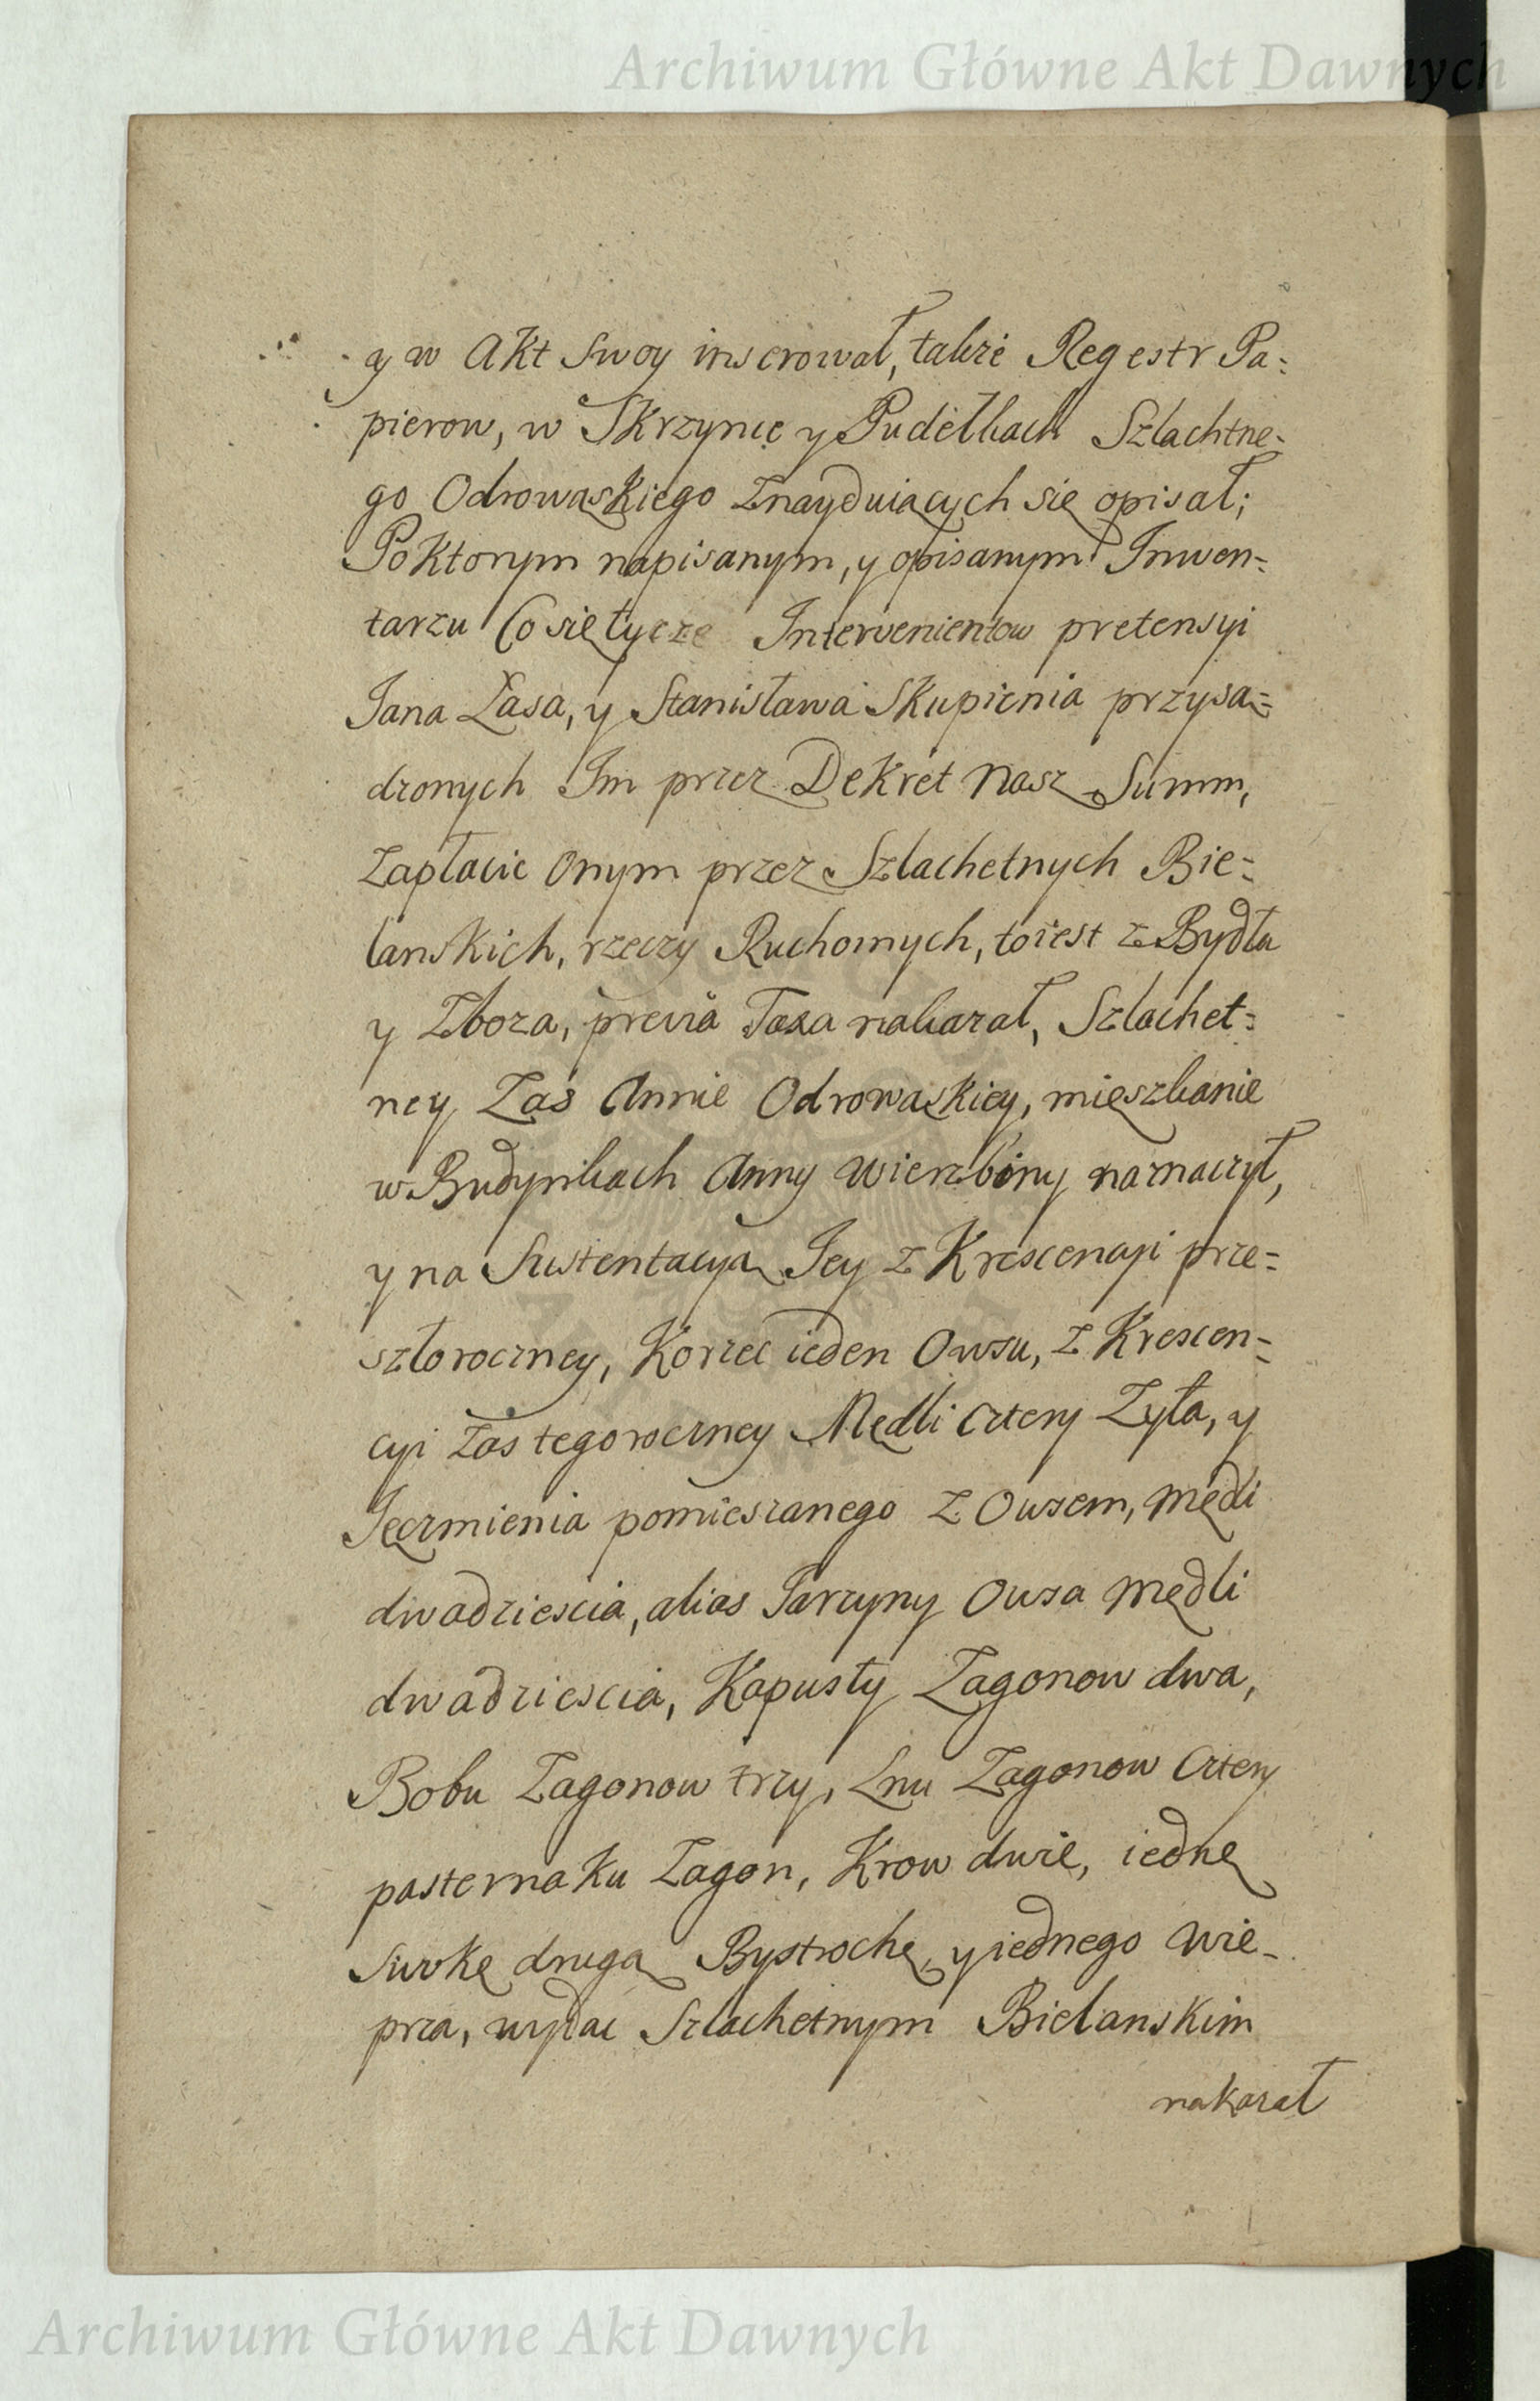 Archiwum Główne Akt Dawnych
y w Akt Swoy inserował, takze Regestr Pa=
pierow, w Skrzynce y Pudełkach Szlachtne=
go Odrowąskiego znayduiących się opisał;
Po ktorym napisanym, y opisanym Inwen=
tarzu Co się tycze Interwenientow pretensyi
Jana Łasa, y Stanisława Skupienia przysą=
dzonych Im przez Dekret Nasz Summ,
Zapłacic Onym przez Szlachetnych Bie=
lanskich, rzeczy Ruchomych, to iest z Bydła
y Zboza, previa Taxa nakazał, Szlachet=
ney Zas Annie Odrowąskiey, mieszkanie
w Budynkach Anny Wierzbiny naznaczył,
y na Sustentacyą Jey z Krescencyi prze=
szłoroczney, Korzec ieden Owsu, z Krescen=
cyi Zas tegoroczney Mędli cztery Zyta, y
Ięczmienia pomieszanego z Owsem, mędli
dwadziescia, alias Parzyny Owsa mędli
dwadziescia, Kapusty Zagonow dwa,
Bobu Zagonow trzy, Lnu Zagonow cztery
pasternaku Zagon, Krow dwie, iednę
Siwkę drugą Bystrochę, y iednego Wie=
prza, wydac Szlachetnym Bielanskim
nakazał
Archiwum Główne Akt Dawnych